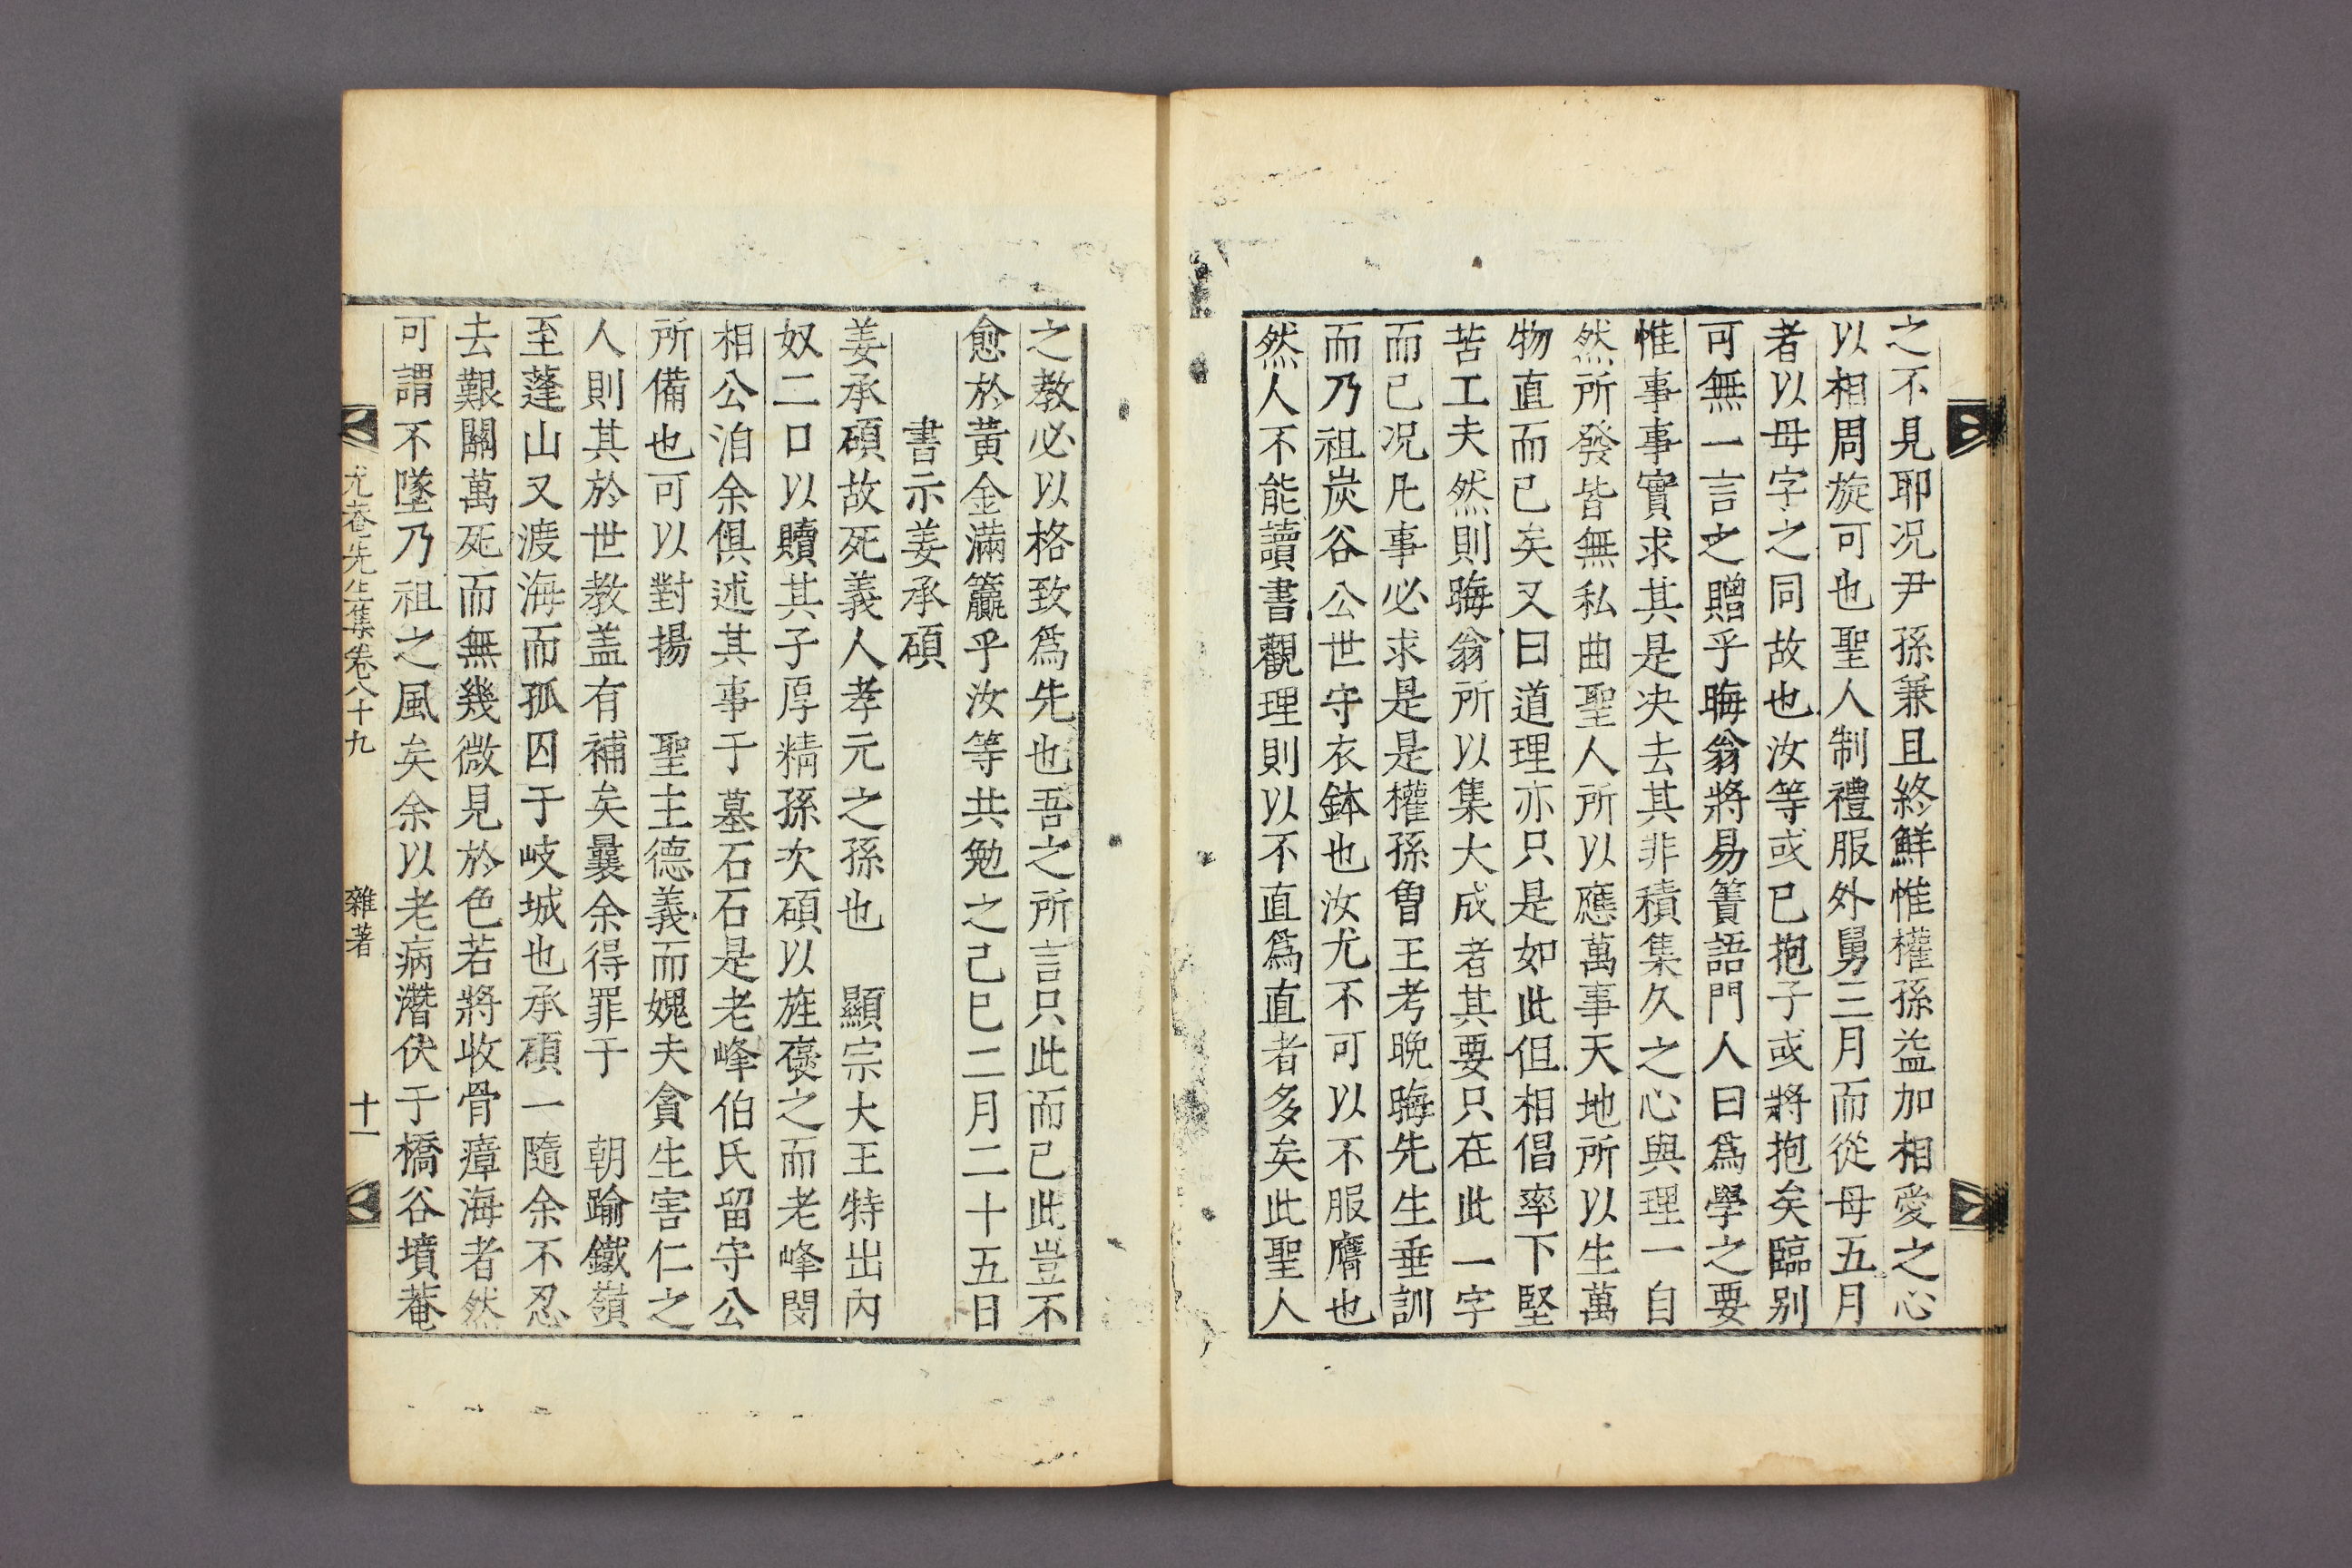 之不見耶况尹孫兼且終鮮惟權孫益加相愛之心
以相周旋可也聖人制禮服外舅三月而從母五月
者以母字之同故也汝等或已抱子或將抱矣臨別
可無一言之贈乎晦翁將易簀語門人曰爲學之要
惟事事實求其是决去其非積集久之心與理一自
然所發皆無私曲聖人所以應萬事天地所以生萬
物直而已矣又曰道理亦只是如此但相倡率下堅
苦工夫然則晦翁所以集大成者其要只在此一字
而已况凡事必求是是權孫曾王考晩晦先生垂訓
而乃祖炭谷公世守衣鉢也汝尤不可以不服膺也
然人不能讀書觀理則以不直爲直者多矣此聖人
之教必以格致爲先也吾之所言只此而已此豈不
愈於黃金滿籯乎汝等共勉之己巳二月二十五日
書示姜承碩
姜承碩故死義人孝元之孫也 顯宗大王特出內
奴二口以贖其子厚精孫次碩以旌褒之而老峰閔
相公洎余俱述其事于墓石石是老峰伯氏留守公
所備也可以對揚 聖主德義而媿夫貪生害仁之
人則其於世教盖有補矣曩余得罪于 朝踰鐵嶺
至蓬山又渡海而孤囚于岐城也承碩一隨余不忍
去艱關萬死而無幾微見於色若將收骨瘴海者然
可謂不墜乃祖之風矣余以老病濳伏于橋谷墳菴
尤菴先生集卷八十九 雜著 十一